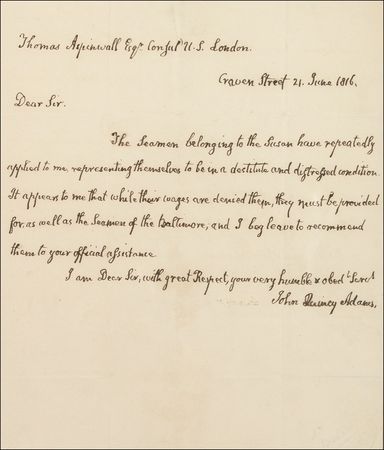 Thomas Aspinwall Esqr. Consul U.S. London.
Craven Street 21. June 1816.
Dear Sir.
The Seamen belonging to the Susan have repeatedly
applied to me, representing themselves to be in a destitute and distressed condition.
It appears to me that while their wages are denied them, they must be provided
for, as well as the Seamen of the Baltimore, and I beg leave to recommend
them to your official assistance
I am Dear Sir, with great Respect, your very humble & obedt. Servt.
John Quincy Adams.